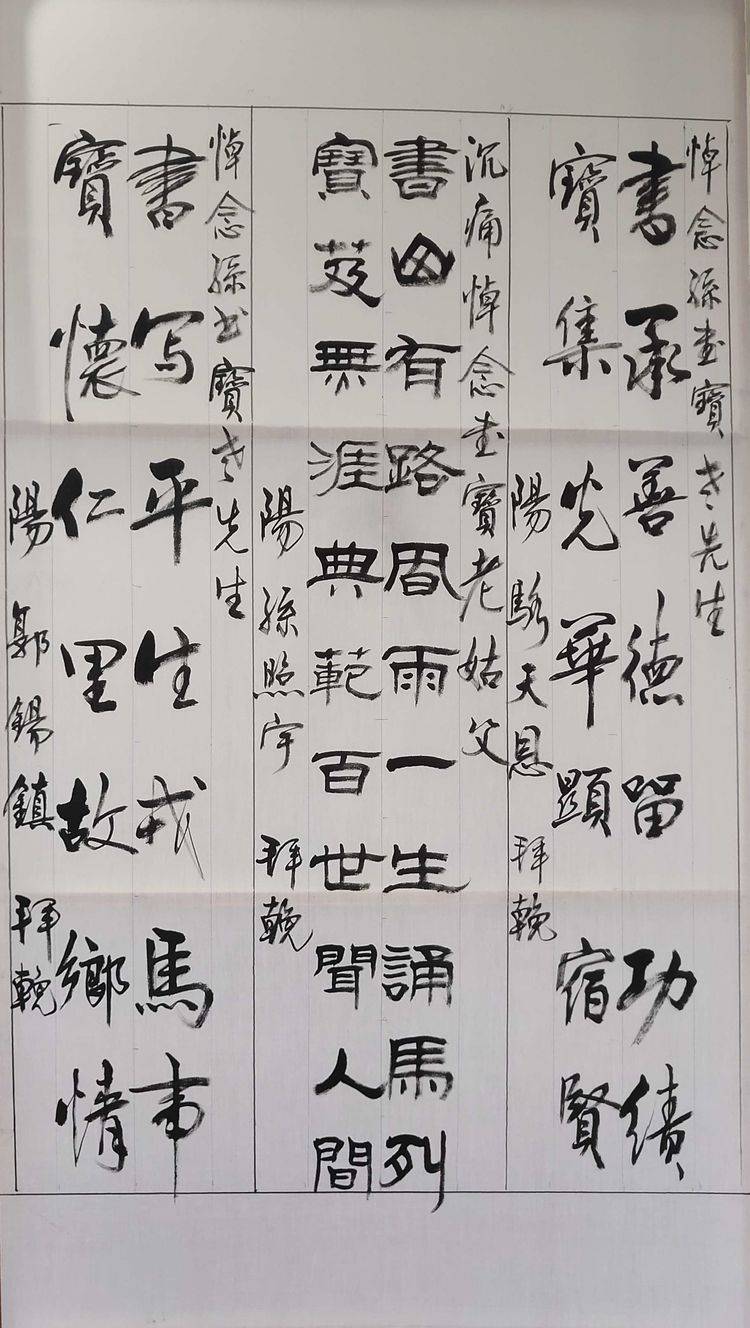 悼念孫书寶老先生
書承善德留功績
寶集光華顯宿賢
陽 駱天恩 拜輓
沉痛悼念书寶老姑父
書山有路風雨一生誦馬列
寶笈無涯典範百世聞人間
陽 孫照宇 拜輓
悼念孫书寶老先生
書写平生戎馬事
寶懷仁里故鄉情
陽 郭錫鎮 拜輓